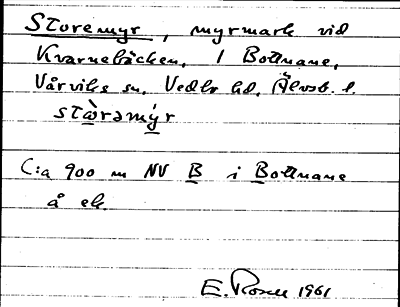 Storemyr, myrmark vid
Kvarnebäcken, 1 Bottnane,
Vårviks sn, Vedbo hd, Älvsb. l.
stὼrəmýr
C:a 900 m NV B i Bottnane
å ek.
E. Rosell 1961